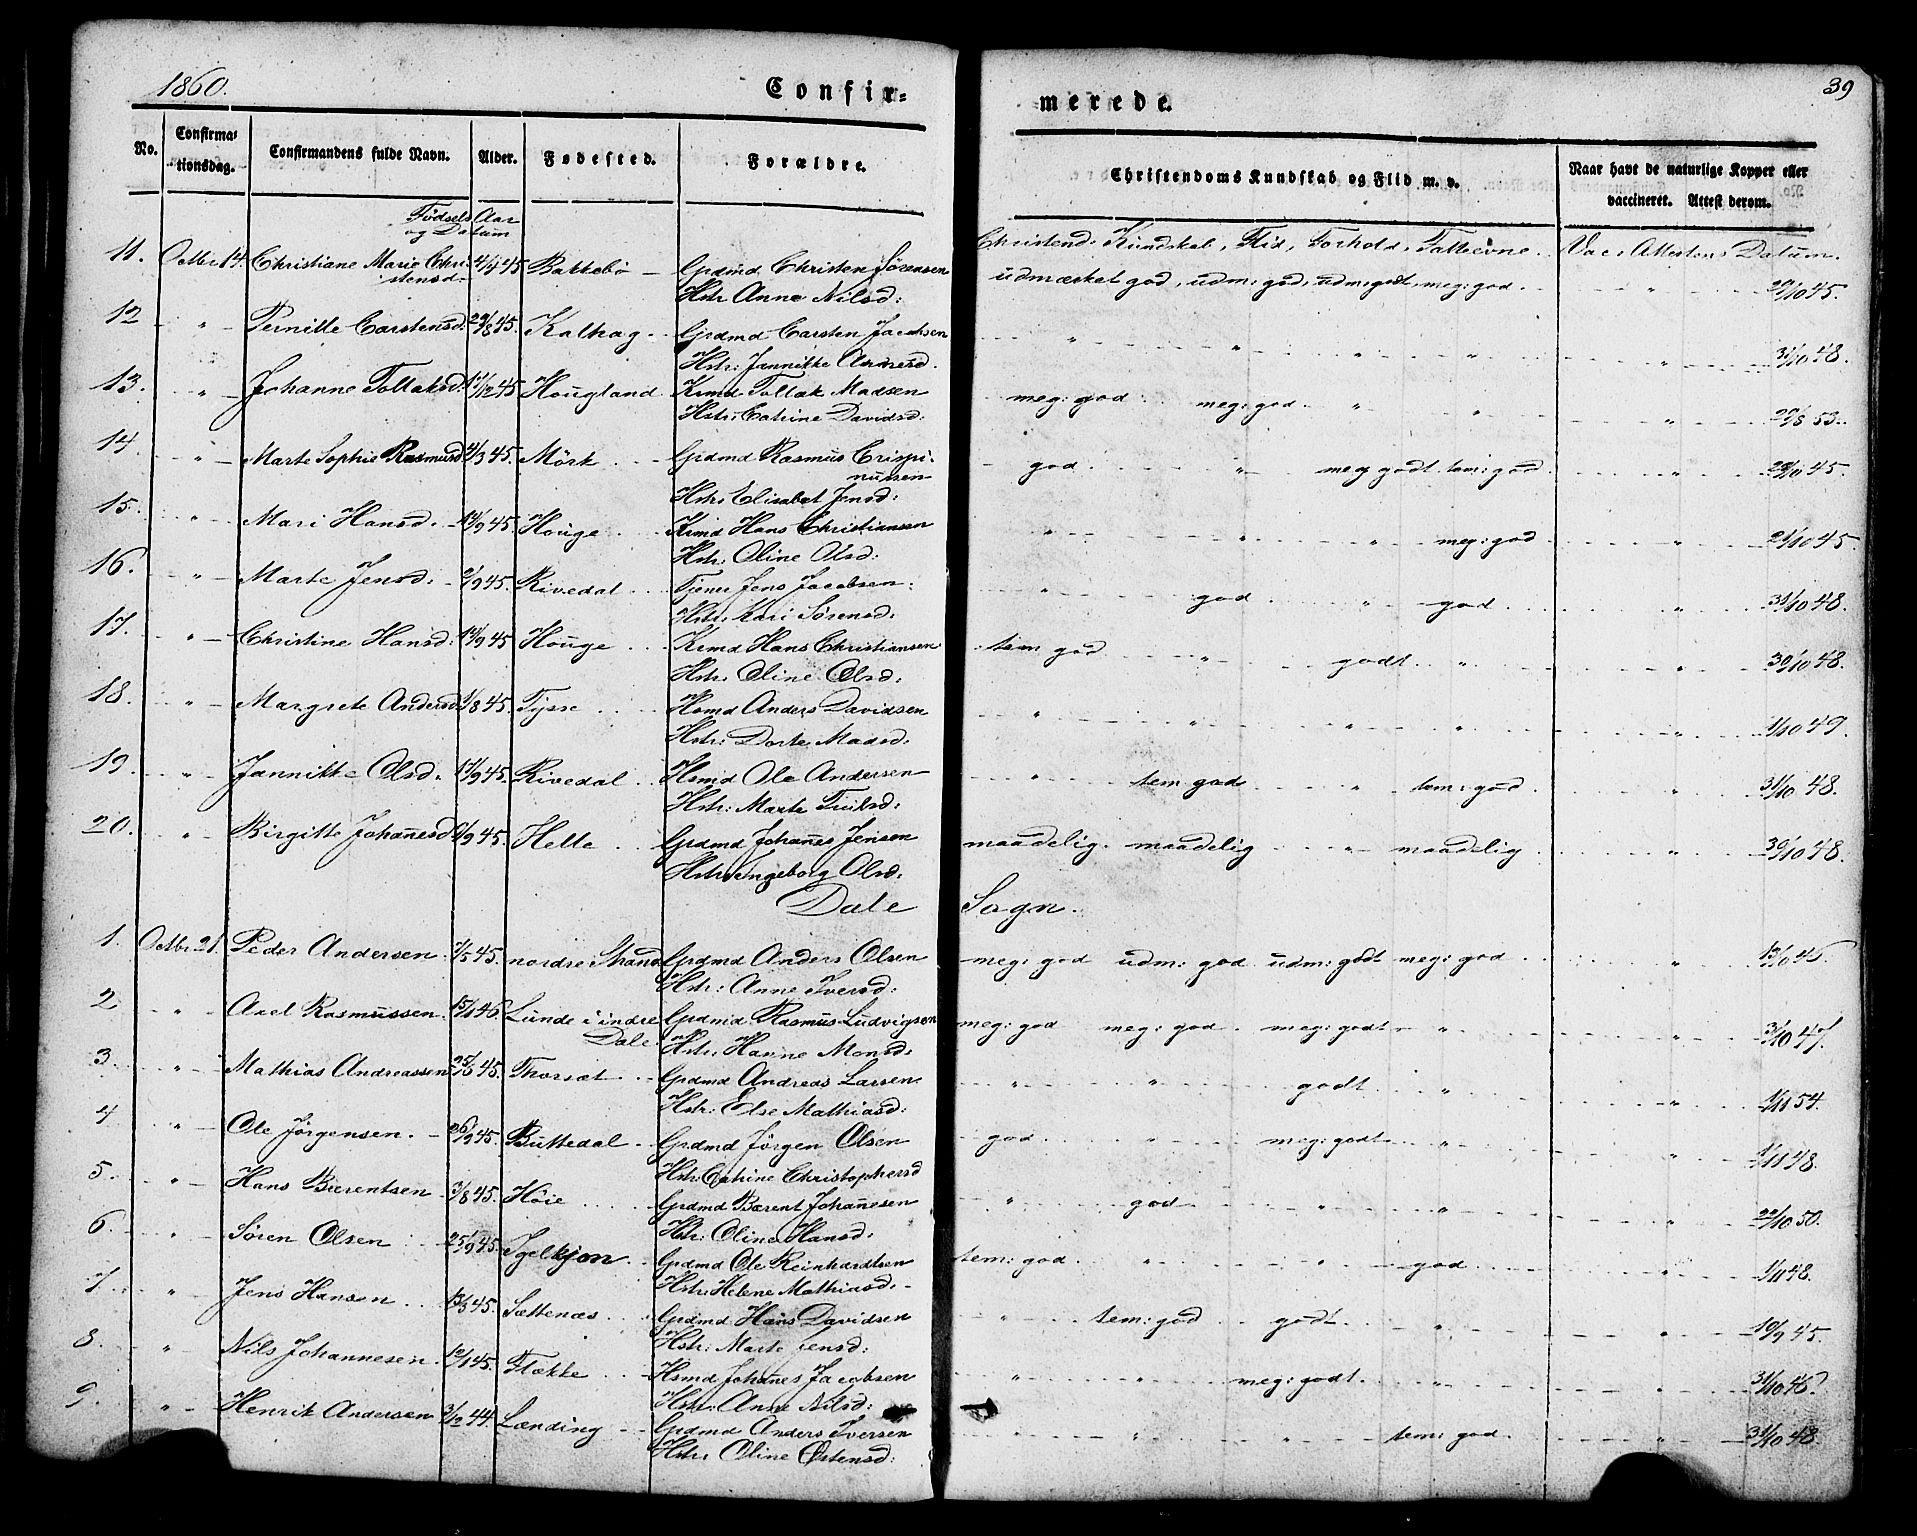 1860.
Confir=
merede.
39
No.
Confirma=
tionsdag.
Confirmandens fulde Navn.
Alder.
Fødested.
Forældre.
Christendoms Kundskab og Flid m. v.
Naar havt de naturlige Kopper eller
vaccineret. Attest derom.
Fødsels Aar
og Datum
Christend: Kundskab, Flid, Forhold, Fatteevne. Vac: Attestens Datum.
11. Octbr 14. Christiane Marie Chri- 4/9 45 Bakkebø Grdmd Christen Sørensen udmærket god, udm: god, udm: godt, meg: god 29/10 45.
stensd. Hstr. Anne Nilsd:
12 " Pernille Carstensd. 29/8 45. Kalhag Grdmd Carsten Jacobsen " " " " " 31/10 48.
Hstr: Jannikke Andersd.
13. " Johanne Tollaksd. 17/12 45 Hougland Krmd Tollak Madsen meg: god meg: god " " " 29/8 53.
Hstr: Catrine Davidsd:
14. " Marte Sophie Rasmusd 4/3 45. Mörk Grdmd Rasmus Crispi- god " meg godt tem: god " 29/10 45.
nussen
Hstr. Elisabet Jensd:
15. " Mari Hansd. 14/9 45. Houge Krmd Hans Christiansen " " " meg: god " 21/10 45.
Hstr: Oline Olsd:
16. " Marte Jensd: 2/9 45. Rivedal Tjener Jens Jacobsen " god " god " 31/10 48.
Hstr. Kari Sørensd:
17. " Christine Hansd: 14/9 45 Houge Krmd Hans Christiansen tem god " godt " " 30/10 48.
Hstr. Oline Olsd:
18. " Margrete Andersd 1/8 45. Tysse Hsmd Anders Davidsen " " " " " 1/10 49.
Hstr: Dorte Madsd:
19. " Jannikke Olsd. 17/9 45. Rivedal Hsmd Ole Andersen " tem god " tem: god " 31/10 48.
Hstr: Marte
20. " Birgitte Johañesd 9/9 45. Helle Grdmd Johañes Jensen maadelig maadelig " maadelig " 30/10 48.
Hstr. Ingeborg Olsd:
Dale Sogn.
1. Octbr 21. Peder Andersen 7/5 45. nordre Strand Grdmd Anders Olsen meg: god udm: god udm: godt meg: god " 13/10 45.
Hstr: Anne Iversd:
2 " Axel Rasmussen 15/1 46. Lunde i indre Grdmd Rasmus Ludvigsen meg: god meg: god meg: godt " " 3/10 47.
Dale Hstr: Hanne Monsd:
3. " Mathias Andreassen 25/6 45. Thorsæt Grdmd Andreas Larsen " " godt " " 1/11 54.
Hstr: Else Mathiasd:
4 " Ole Jörgensen. 26/9 45. Buttedal Grdmd Jørgen Olsen god " meg: godt " " 1/11 48.
Hstr: Catrine Christophersd
5. " Hans Bærentsen 3/8 45. Höie Grdmd Bærent Johañesen " god " " " 22/10 50.
Hstr: Oline Hansd:
6. " Søren Olsen 25/9 45. Igelkjøn Grdmd Ole Reinhardtsen tem: god " " god " 1/11 48.
Hstr: Helene Mathiasd:
7. " Jens Hansen 13/3 45. Sættenæs Grdmd Hans Davidsen " tem: god godt " " 10/9 45.
Hstr: Marte Jensd:
8. " Nils Johannesen 12/1 45. Flække Hsmd Johañes Jacobsen " " meg: godt " " 31/10 48.
Hstr. Anne Nilsd:
9. " Henrik Andersen 3/12 44. Lænding Grdmd Anders Iversen " " " tem: god " 31/10 48.
Hstr. Oline Østensd: